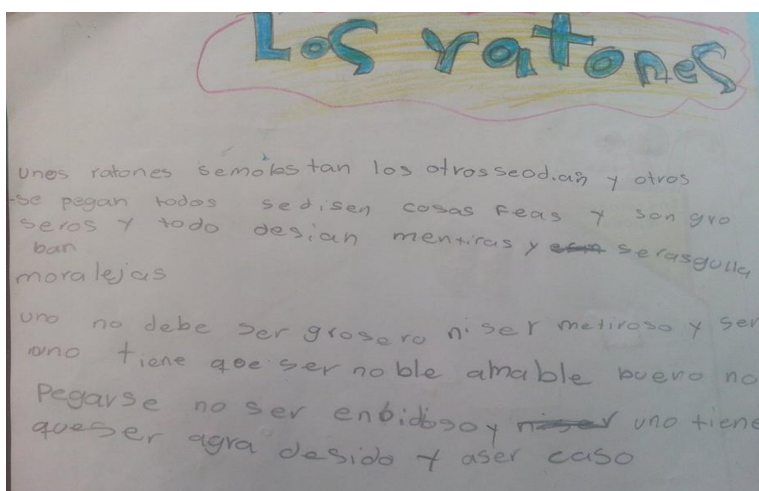 Los ratones
unos ratones semolestan los otrosseodian y otros
se pegan todos sedisen cosas feas y son gro
seros y todo desian mentiras y serasguña
ban
moralejas
uno no debe ser grosero ni ser metiroso y ser
uno tiene que ser noble amable bueno no
Pegarse no ser enbidioso y uno tiene
queser agra desido y aser caso